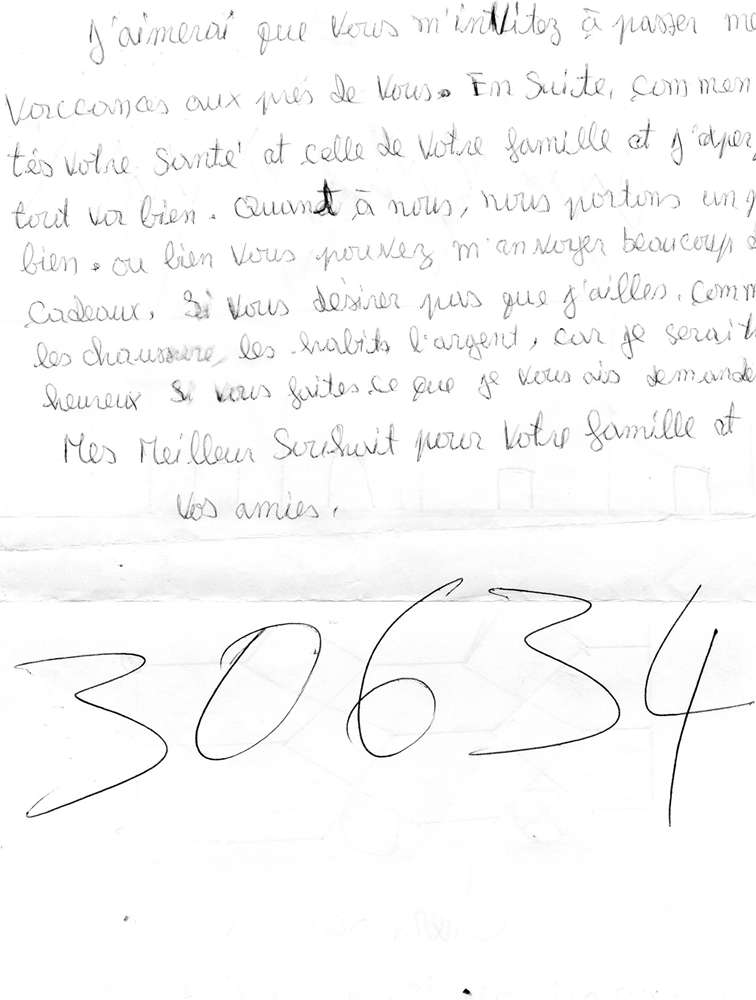 J'aimerai que vous m'invitez à passer me
vaccances aux près de vous. En Suite, commen
tés votre Santé et celle de votre famille et j'esper
tout va bien. Quant à nous, nous portons un p
bien. ou bien vous pouvez m'envoyer beaucoup d
cadeaux, Si vous désirer pas que j'ailles. comm
les chaussure, les habits l'argent, car je serait
heureux Si vous faites ce que je vous ais demande
Mes Meilleur Souhait pour votre famille et
Vos amies.
30634